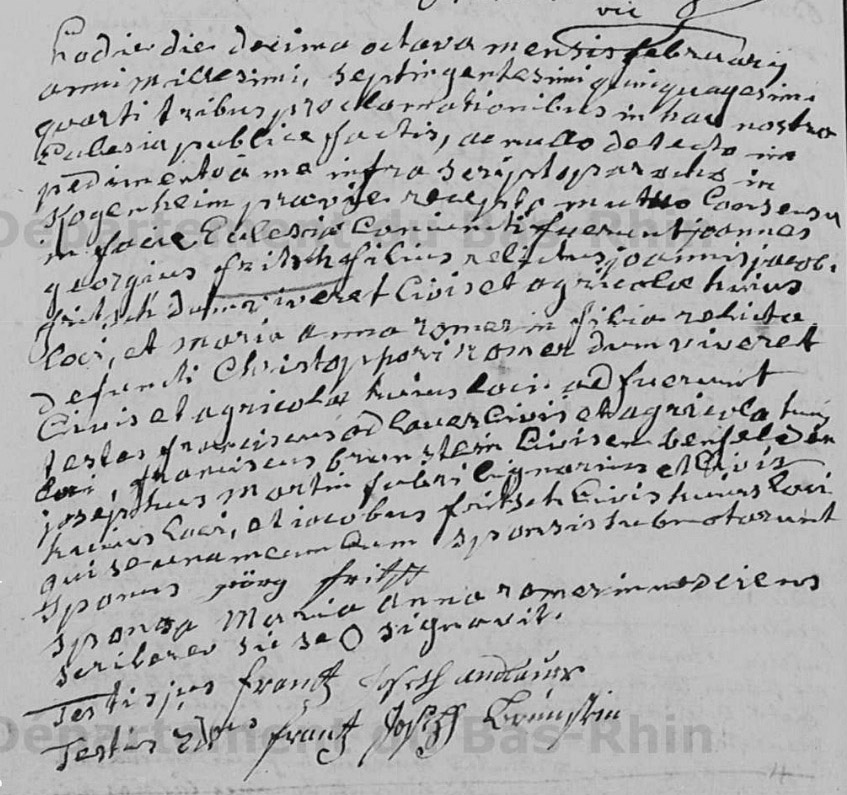 vic
hodie die decima octava mensis februarij
anni millesimi, septingentesimi quinquagesimi
quarti tribus proclamationibus in hac nostra
Eclesia publice factis, ac nullo detecto im
pedimento à me infra scripto parocho in
Kogenheim prævie recepto mutuo Consensu
in facie Eclesiæ Coniuncti fuerunt joannes
georgius fritsch filius relictus joannis jacobi
fritsch dum viveret Civis et agricolæ huius
loci, et maria anna romerin filia relicta
defuncti Christophori romer dum viveret
Civis et agricolæ huius loci. adfuerunt
testes franciscus Civis et agricola huius
loci, franciscus brunstein Civis en benfelden
josephus martin fabri lignarius et Civis
huius loci, et iacobus fritsch Civis huius loci
qui se una mecum Cum sponsis submotarunt
Sponsus jörg fritsch
sponsa Maria anna romerin nesciens
scribere sic se O signavit.
Testis jus frantz Joseph andlauer
Testus 2dus frantz Joseph Brunstein
Département du Bas-Rhin
Département du Bas-Rhin